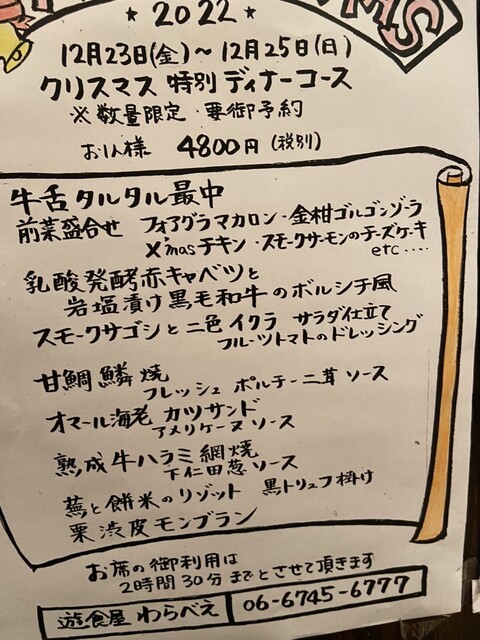 MAS
★ 2022 ★
12月23日(金)～12月25日(日)
クリスマス 特別ディナーコース
※数量限定・要御予約
お1人様 4800円(税別)
牛舌タルタル最中
前菜盛合せ フォアグラマカロン・金柑ゴルゴンゾーラ
X'masチキン・スモークサーモンのチーズケーキ
etc....
乳酸発酵赤キャベツと
岩塩漬け黒毛和牛のボルシチ風
スモークサゴシと二色イクラ サラダ仕立て
フルーツトマトのドレッシング
甘鯛鱗焼
フレッシュ ポルチーニ茸 ソース
オマール海老 カツサンド
アメリケーヌソース
熟成牛ハラミ網焼
下仁田葱ソース
蕪と餅米のリゾット 黒トリュフ掛け
栗渋皮モンブラン
お席の御利用は
2時間30分までとさせて頂きます
遊食屋 わらべえ 06-6745-6777